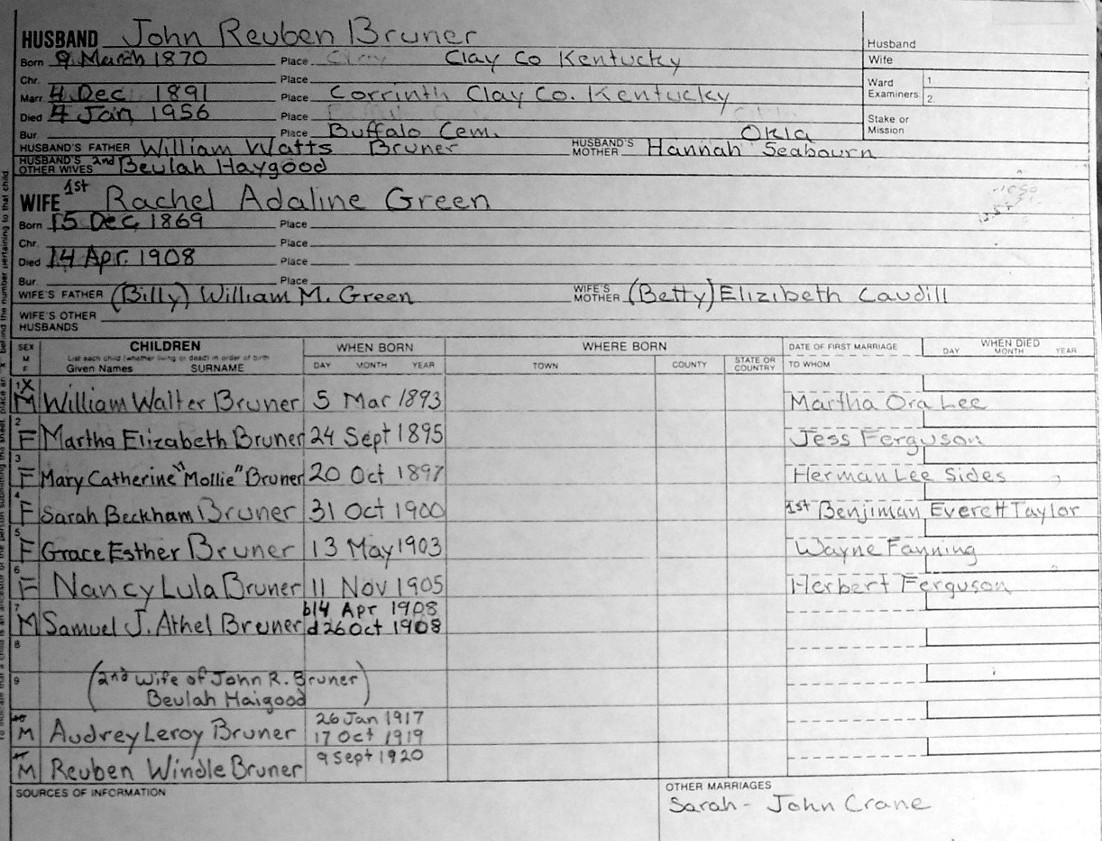 HUSBAND John Reuben Bruner
Husband
Wife
Born 9 March 1870 Place Clay Co Kentucky
Chr. Place
Ward Examiners 1. 2.
Marr. 4 Dec 1891 Place Corrinth Clay Co. Kentucky
Died 4 Jan 1956 Place
Stake or Mission
Bur. Place Buffalo Cem. Okla
HUSBAND'S FATHER William Watts Bruner HUSBAND'S MOTHER Hannah Seabourn
HUSBAND'S OTHER WIVES 2nd Beulah Haygood
WIFE 1st Rachel Adaline Green
Born 15 Dec 1869 Place
Chr. Place
Died 14 Apr. 1908 Place
Bur. Place
WIFE'S FATHER (Billy) William M. Green WIFE'S MOTHER (Betty) Elizibeth Caudill
WIFE'S OTHER HUSBANDS
SEX M F CHILDREN List each child (whether living or dead) in order of birth Given Names SURNAME WHEN BORN DAY MONTH YEAR WHERE BORN TOWN COUNTY STATE OR COUNTRY DATE OF FIRST MARRIAGE TO WHOM WHEN DIED DAY MONTH YEAR
1 X M William Walter Bruner 5 Mar 1893 Martha Ora Lee
2 F Martha Elizabeth Bruner 24 Sept 1895 Jess Ferguson
3 F Mary Catherine "Mollie" Bruner 20 Oct 1897 Herman Lee Sides
4 F Sarah Beckham Bruner 31 Oct 1900 1st Benjiman Everett Taylor
5 F Grace Esther Bruner 13 May 1903 Wayne Fanning
6 F Nancy Lula Bruner 11 Nov 1905 Herbert Ferguson
7 M Samuel J. Athel Bruner b14 Apr 1908 d 26 Oct 1908
8
9 (2nd Wife of John R. Bruner
Beulah Haigood)
M Audrey Leroy Bruner 26 Jan 1917 17 Oct 1919
M Reuben Windle Bruner 9 Sept 1920
SOURCES OF INFORMATION
OTHER MARRIAGES
Sarah - John Crane